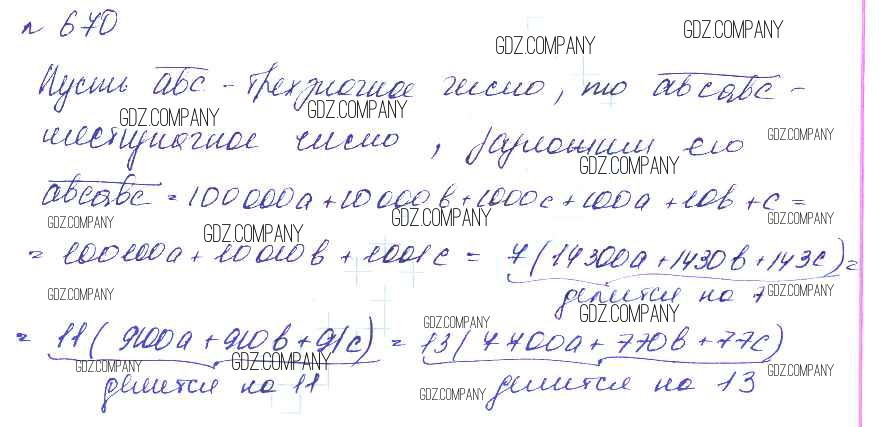 № 670
GDZ.COMPANY GDZ.COMPANY
Пусть abc - трехзначное число, то abcabc -
GDZ.COMPANY GDZ.COMPANY
шестизначное число, разложим его
GDZ.COMPANY GDZ.COMPANY
abcabc = 100 000a + 10 000b + 1000c + 100a + 10b + c =
GDZ.COMPANY GDZ.COMPANY GDZ.COMPANY GDZ.COMPANY
= 100100a + 10010b + 1001c = 7(14300a + 1430b + 143c) =
делится на 7
GDZ.COMPANY GDZ.COMPANY GDZ.COMPANY
= 11(9100a + 910b + 91c) = 13(7700a + 770b + 77c)
GDZ.COMPANY GDZ.COMPANY GDZ.COMPANY GDZ.COMPANY
делится на 11 делится на 13
GDZ.COMPANY